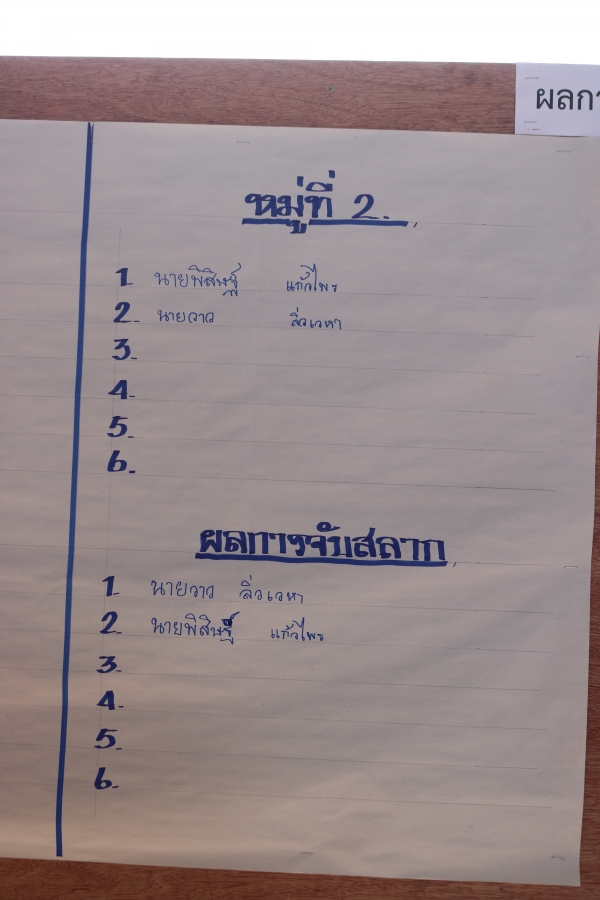 ผลกา
หมู่ที่ 2.
1. นายพิสิษฐ์ แก้วไพร
2. นายวาว ลิ่วเวหา
3.
4.
5.
6.
ผลการจับสลาก
1. นายวาว ลิ่วเวหา
2. นายพิสิษฐ์ แก้วไพร
3.
4.
5.
6.